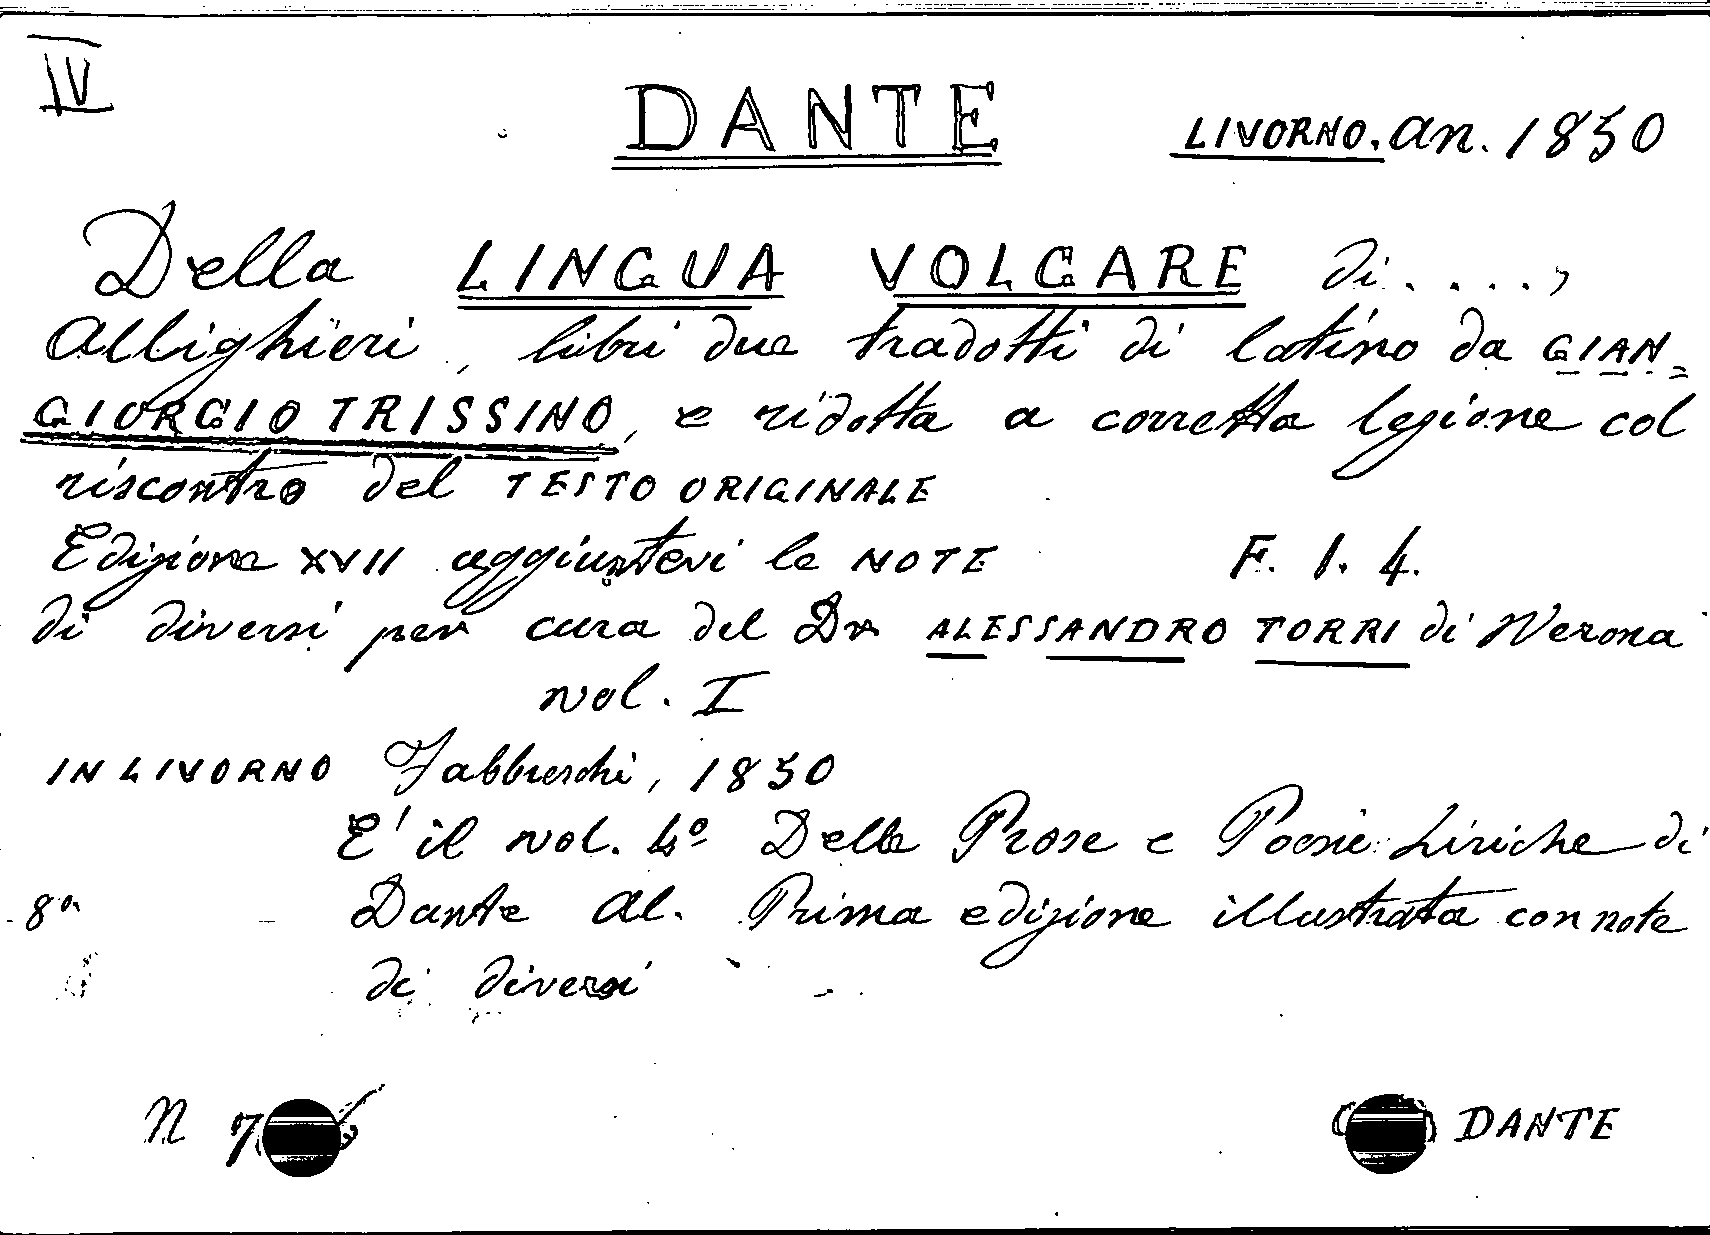 IV
DANTE
LIVORNO. an. 1850
Della LINGUA VOLGARE di . . . . ,
Allighieri, libri due tradotti di latino da GIAN=
GIORGIO TRISSINO, e ridotta a corretta lezione col
riscontro del TESTO ORIGINALE
Edizione XVII aggiuntevi le NOTE F. 1. 4.
di diversi per cura del Dr ALESSANDRO TORRI di Verona
vol. I
IN LIVORNO Fabbreschi, 1850
E' il vol. 4º Delle Prose e Poesie Liriche di
8º Dante Al. Prima edizione illustrata con note
di diversi
N 7
DANTE